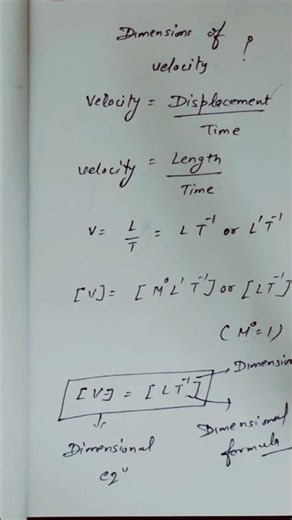 Dimensions of
velocity ?
Velocity = Displacement / Time
velocity = Length / Time
V = L/T = L T⁻¹ or L¹ T⁻¹
[V] = [M⁰ L¹ T⁻¹] or [L T⁻¹]
(M⁰ = 1)
[V] = [L T⁻¹] → Dimension
Dimensional
eqⁿ
Dimensional
formula